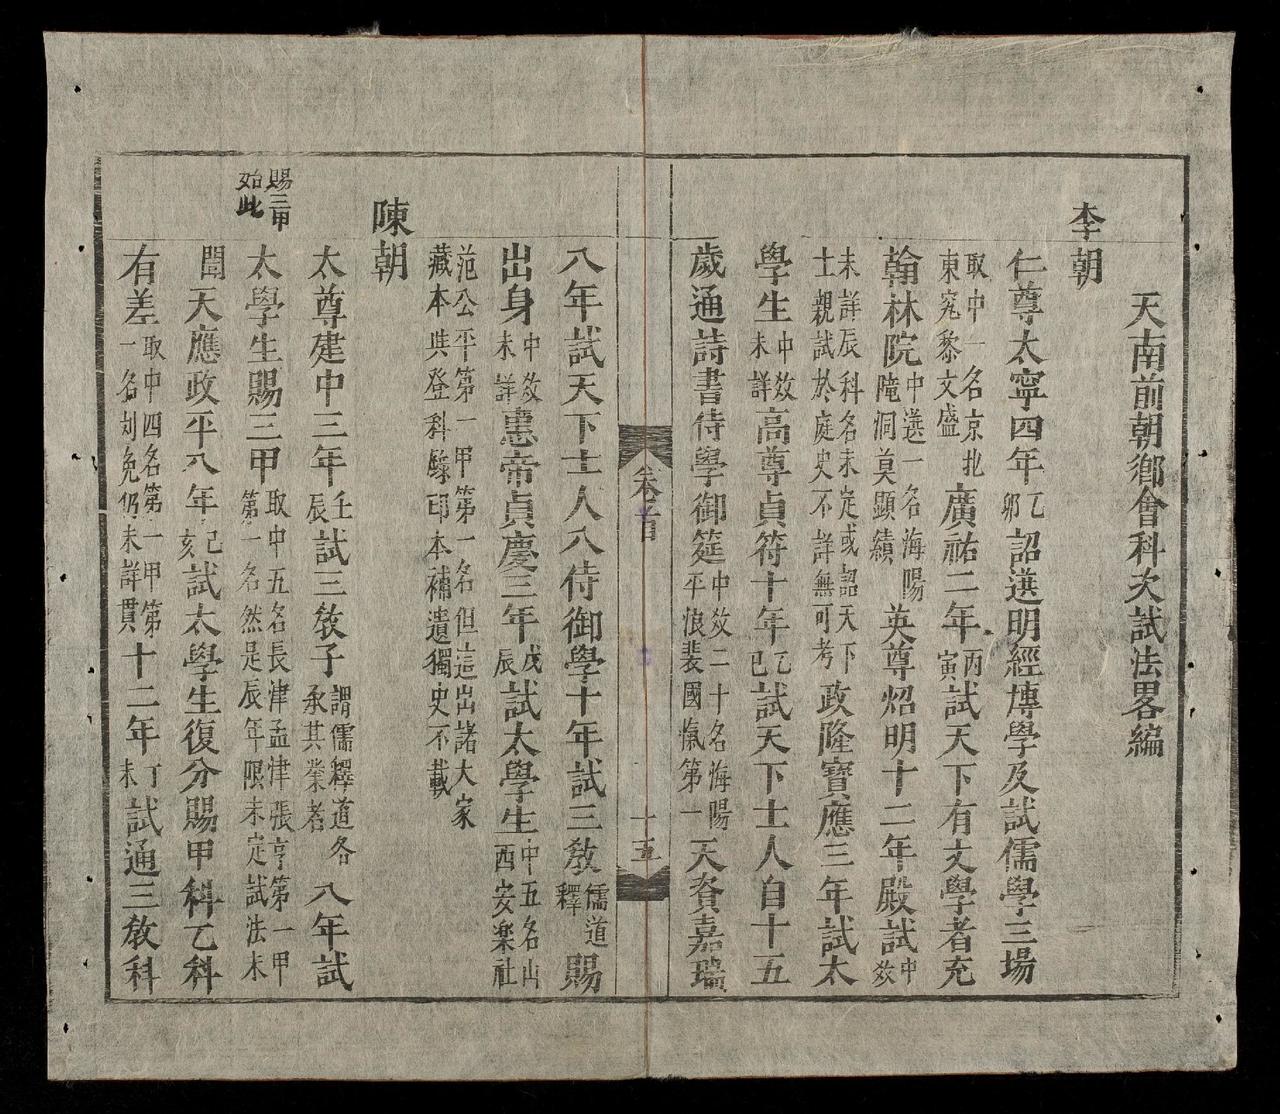 天南前朝鄉會科次試法畧編
李朝
仁尊太寧四年乙卯詔選明經博學及試儒學三場
取中一名京北東宄黎文盛廣祐二年丙寅試天下有文學者充
翰林院中選一名海陽陲洞莫顯績英尊炤明十二年殿試中效
未詳辰科名未定或詔天下士親試於庭史不詳無可考政隆寶應三年試太
學生中效未詳高尊貞符十年乙巳試天下士人自十五
歲通詩書侍學御筵中效二十名海陽平浪裴國愾第一天資嘉瑞
卷首
十五
八年試天下士人入侍御學十年試三教儒道釋賜
出身中效未詳惠帝貞慶三年戊辰試太學生中五名山西安樂社
范公平第一甲第一名但這出諸大家藏本與登科錄印本補遺獨史不載
陳朝
太尊建中三年壬辰試三教子謂儒釋道各承其業者八年試
賜三甲始此
太學生賜三甲取中五名長津孟津張亨第一甲第一名然是辰年限未定試法未
聞天應政平八年己亥試太學生復分賜甲科乙科
有差取中四名第一甲第一名刘免仍未詳貫十二年丁未試通三教科